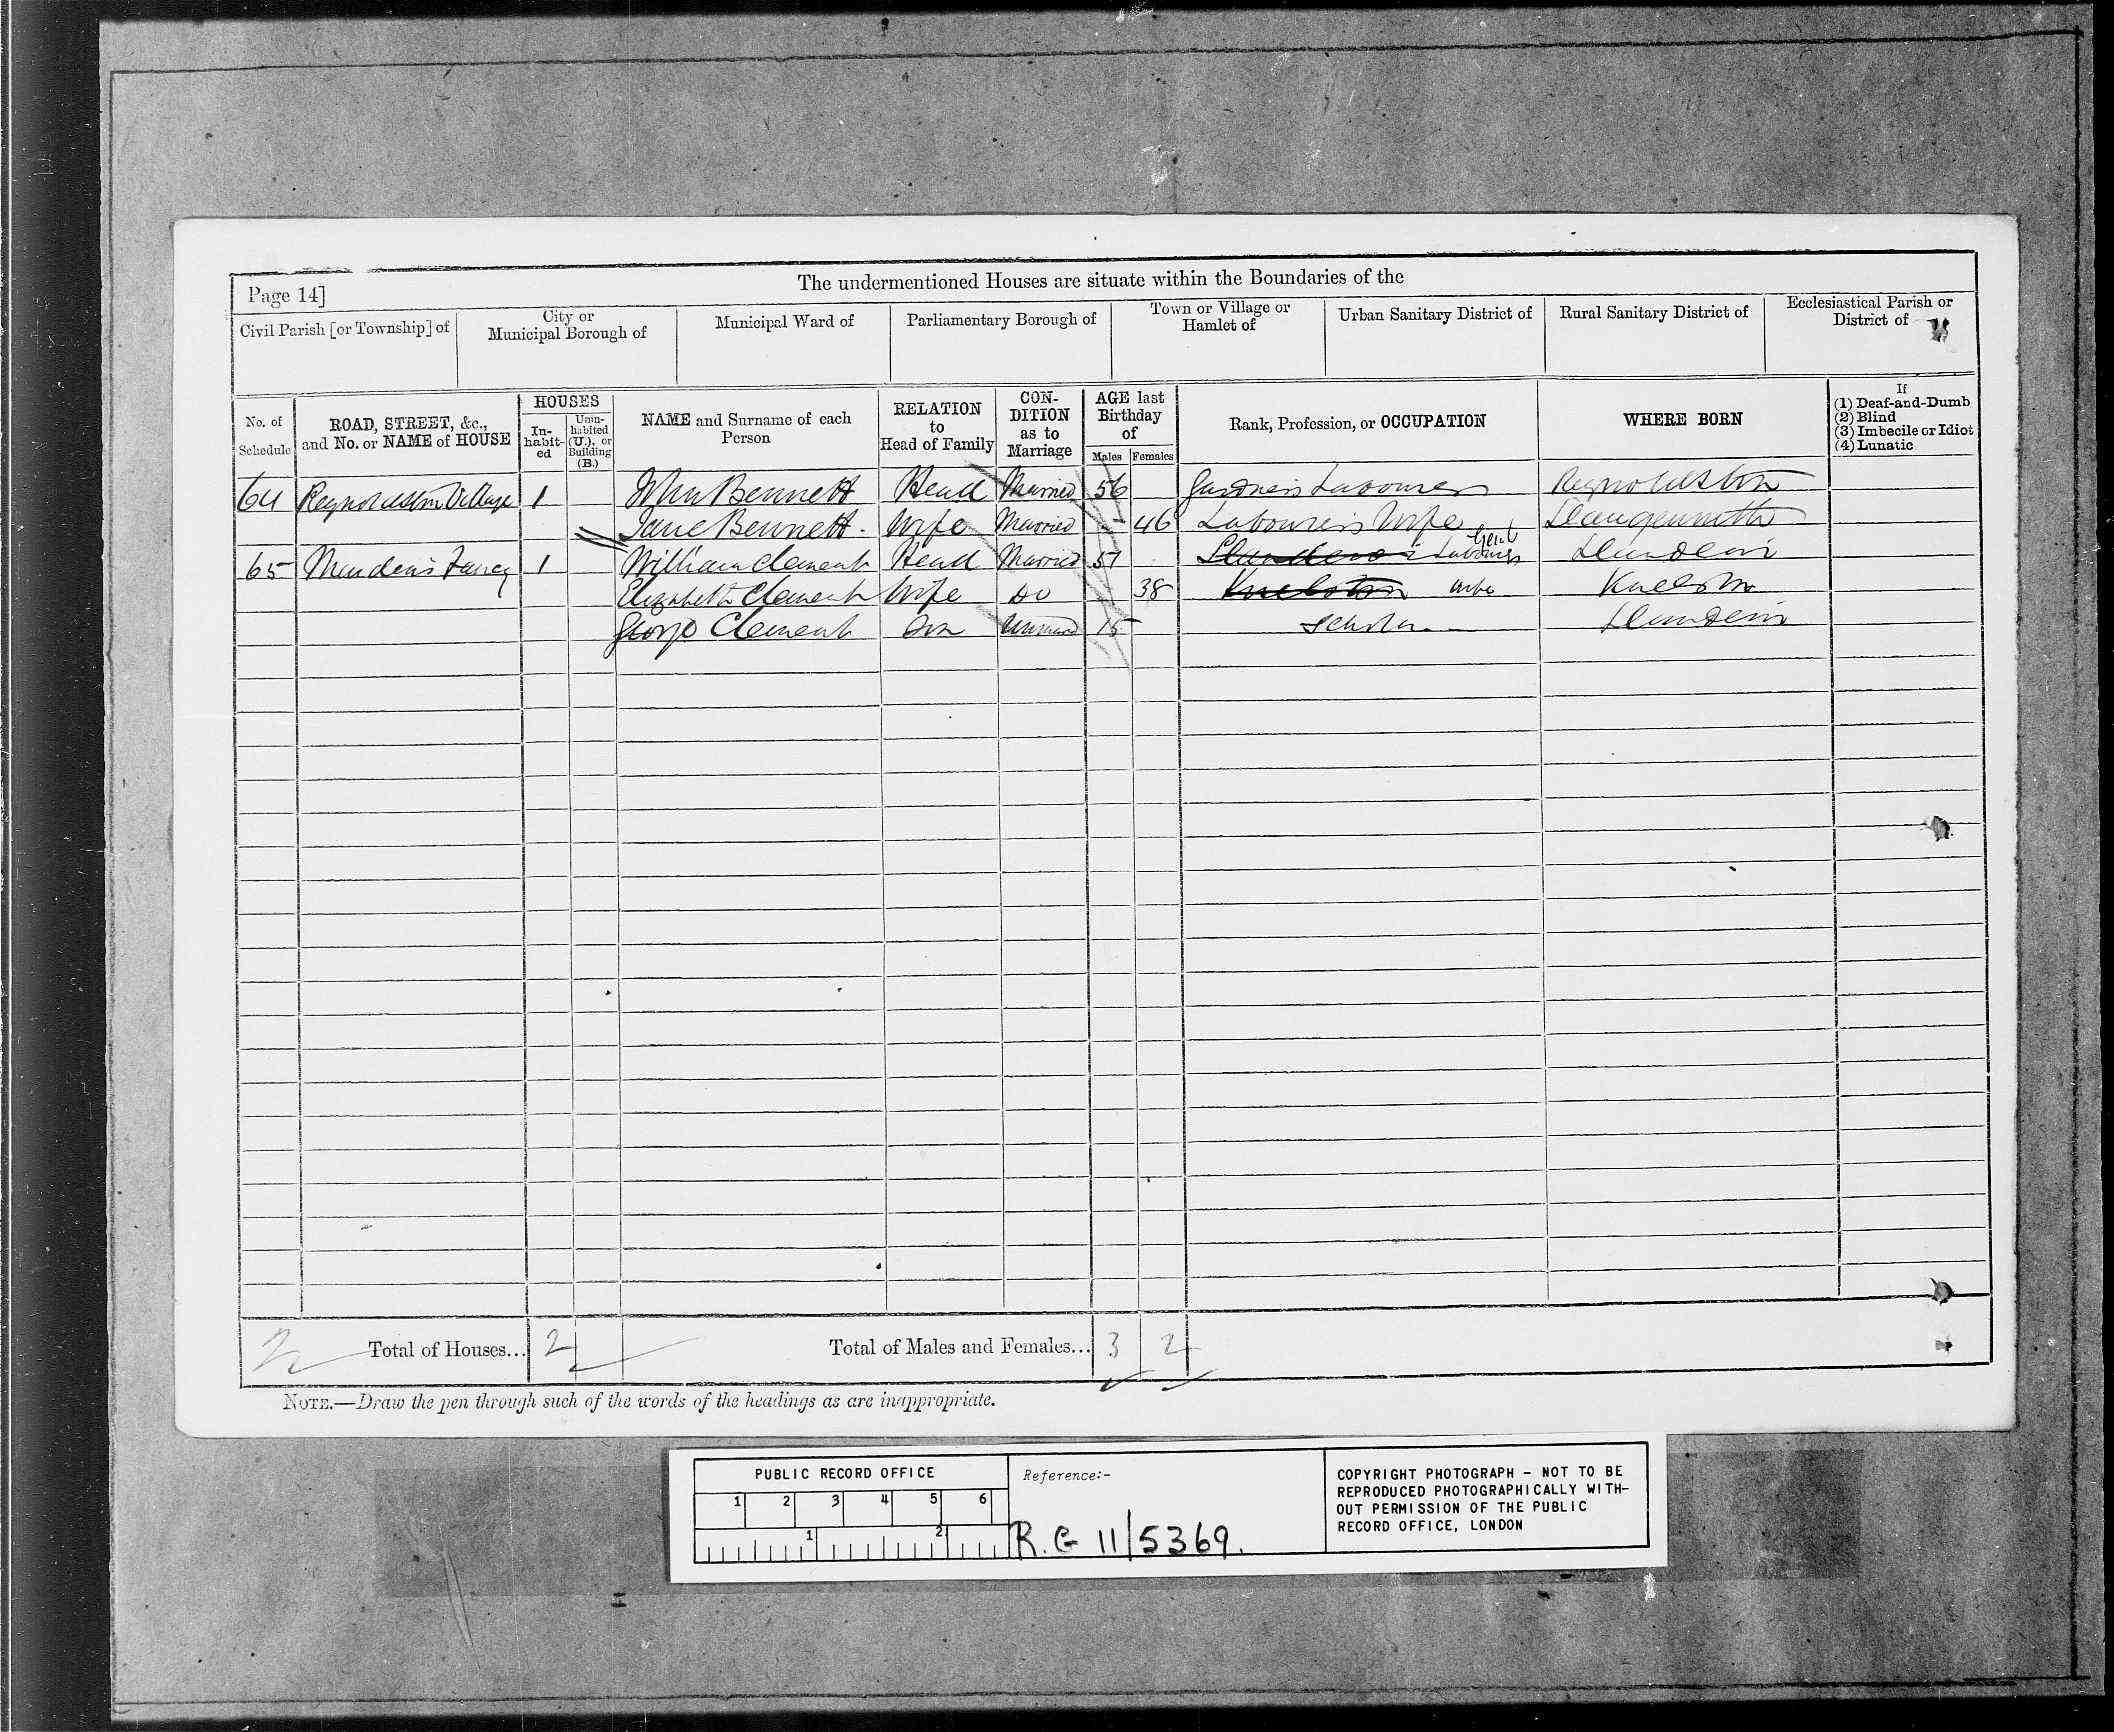 The undermentioned Houses are situate within the Boundaries of the
Page 14]
Civil Parish [or Township] of
City or Municipal Borough of
Municipal Ward of
Parliamentary Borough of
Town or Village or Hamlet of
Urban Sanitary District of
Rural Sanitary District of
Ecclesiastical Parish or District of
No. of Schedule
ROAD, STREET, &c., and No. or NAME of HOUSE
HOUSES
In-habit-ed
Unin-habited (U.), or Building (B.)
NAME and Surname of each Person
RELATION to Head of Family
CON-DITION as to Marriage
AGE last Birthday of
Males
Females
Rank, Profession, or OCCUPATION
WHERE BORN
If
(1) Deaf-and-Dumb
(2) Blind
(3) Imbecile or Idiot
(4) Lunatic
64 Reynoldston Village 1 John Bennett Head Married 56 Gardners Labourer Reynoldston
Jane Bennett. Wife Married - 46 Labourers Wife Llangennith
65 1 William Clement Head Married 57 Labourer Llandewi
Elizabeth Clement Wife Do 38 Knelston wife Knelston
George Clement Son 15 Scholar Llandewi
2 Total of Houses... 2 Total of Males and Females... 3 2
NOTE.—Draw the pen through such of the words of the headings as are inappropriate.
PUBLIC RECORD OFFICE
1 2 3 4 5 6
1 2
Reference:-
R.G 11/5369.
COPYRIGHT PHOTOGRAPH - NOT TO BE
REPRODUCED PHOTOGRAPHICALLY WITH-
OUT PERMISSION OF THE PUBLIC
RECORD OFFICE, LONDON